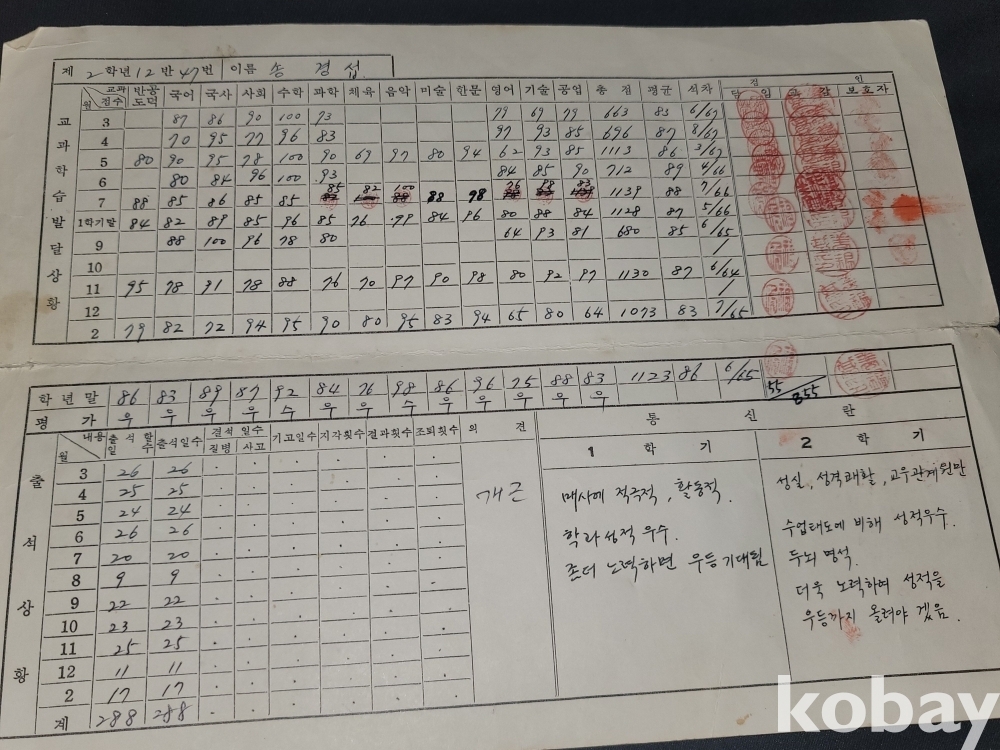 제 2 학년 12 반 47 번 이름 송 경 섭
교과 점수 월 반공도덕 국어 국사 사회 수학 과학 체육 음악 미술 한문 영어 기술 공업 총 점 평균 석차 담 임 교 감 보호자
교 과 학 습 발 달 상 황
3 87 86 90 100 73 79 69 79 663 83 6/67
4 70 95 77 96 83 97 93 85 696 87 8/67
5 80 90 95 78 100 90 69 97 80 94 62 93 85 1113 86 3/67
6 80 84 96 100 93 84 85 90 712 89 4/66
7 88 85 86 85 85 85 82 100 88 98 76 88 83 1139 88 7/66
1학기말 84 82 89 85 96 85 76 99 84 96 80 88 84 1128 87 5/66
9 88 100 96 78 80 64 93 81 680 85 6/65
10 /
11 95 78 91 78 88 76 70 97 90 98 80 92 97 1130 87 6/64
12 /
2 79 82 72 94 95 90 80 95 83 94 65 80 64 1073 83 7/65
학 년 말 86 83 89 87 92 84 76 98 86 96 75 88 83 1123 86 6/65
55/855
평 가 우 우 우 우 수 우 우 수 우 우 우 우
출 석 상 황
내용 월 출석할일수 출석일수 결석일수 질병 사고 기고일수 지각횟수 결과횟수 조퇴횟수 의 견
3 26 26
4 25 25
5 24 24
6 26 26
7 20 20
8 9 9
9 22 22
10 23 23
11 25 25
12 11 11
2 17 17
계 288 288
개근
통 신 란
1 학 기
매사에 적극적, 활동적.
학과성적 우수.
좀더 노력하면 우등 기대됨
2 학 기
성실, 성격쾌활, 교우관계원만
수업태도에 비해 성적우수.
두뇌 명석.
더욱 노력하여 성적을
우등까지 올려야 겠음.
kobay